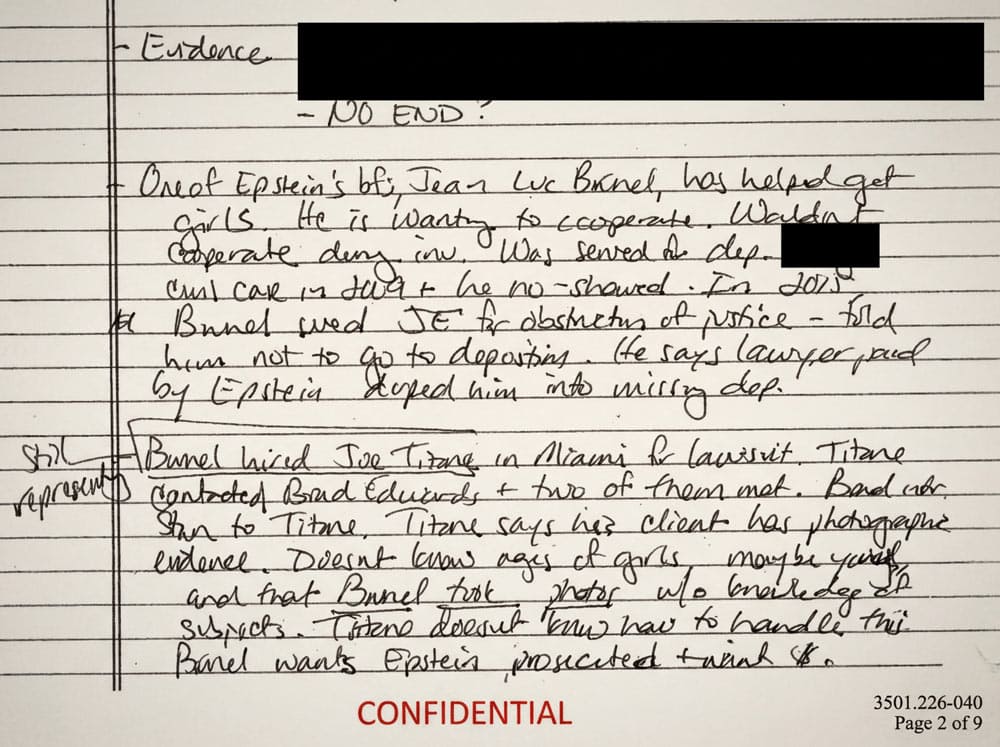 - Evidence
- NO END?
- One of Epstein's bfs, Jean Luc Brunel, has helped get
girls. He is wanting to cooperate. Wouldn't
cooperate during inv. Was served for dep.
civil case in + he no-showed. In
Brunel sued JE for obstruction of justice - told
him not to go to deposition. He says lawyer, paid
by Epstein duped him into missing dep.
still
represents
- Brunel hired Joe Titone in Miami for lawsuit. Titone
contacted Brad Edwards + two of them met. Brad
Stan to Titone. Titone says his client has photographic
evidence. Doesn't know ages of girls, maybe
and that Brunel took photos w/o knowledge of
subjects. Titone doesn't know how to handle this
Brunel wants Epstein prosecuted + $.
CONFIDENTIAL
3501.226-040
Page 2 of 9